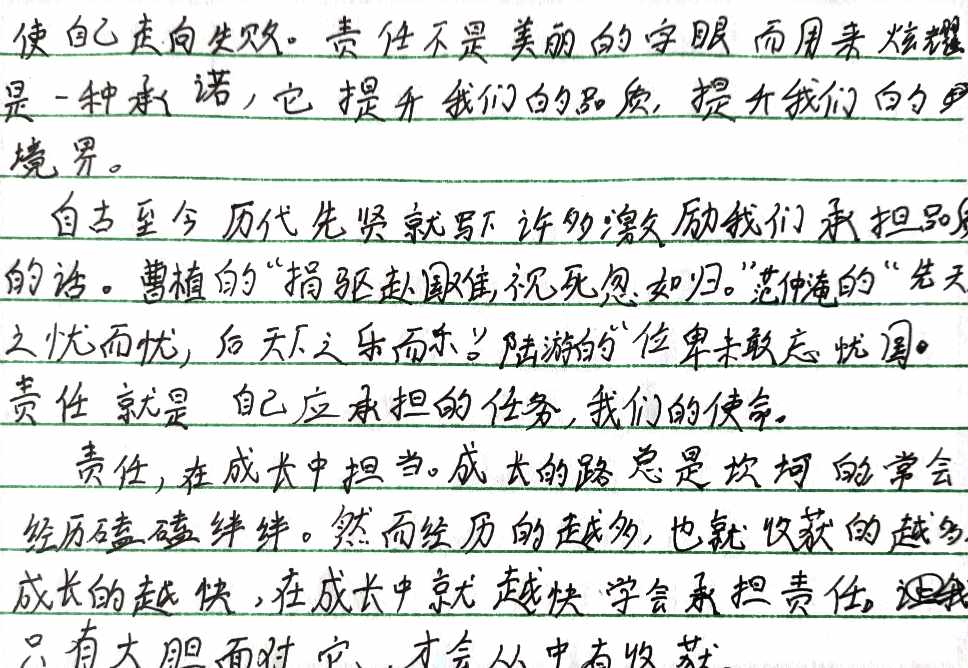 使自己走向失败。责任不是美丽的字眼而用来炫耀
是一种承诺，它提升我们的品质，提升我们的
境界。
自古至今历代先贤就写下许多激励我们承担品质
的话。曹植的“捐驱赴国难，视死忽如归。”范仲淹的“先天
之忧而忧，后天下之乐而乐。”陆游的“位卑未敢忘忧国。
责任就是自己应承担的任务，我们的使命。
责任，在成长中担当。成长的路总是坎坷的常会
经历磕磕绊绊。然而经历的越多，也就收获的越多
成长的越快，在成长中就越快学会承担责任。
只有大胆面对它，才会从中有收获。